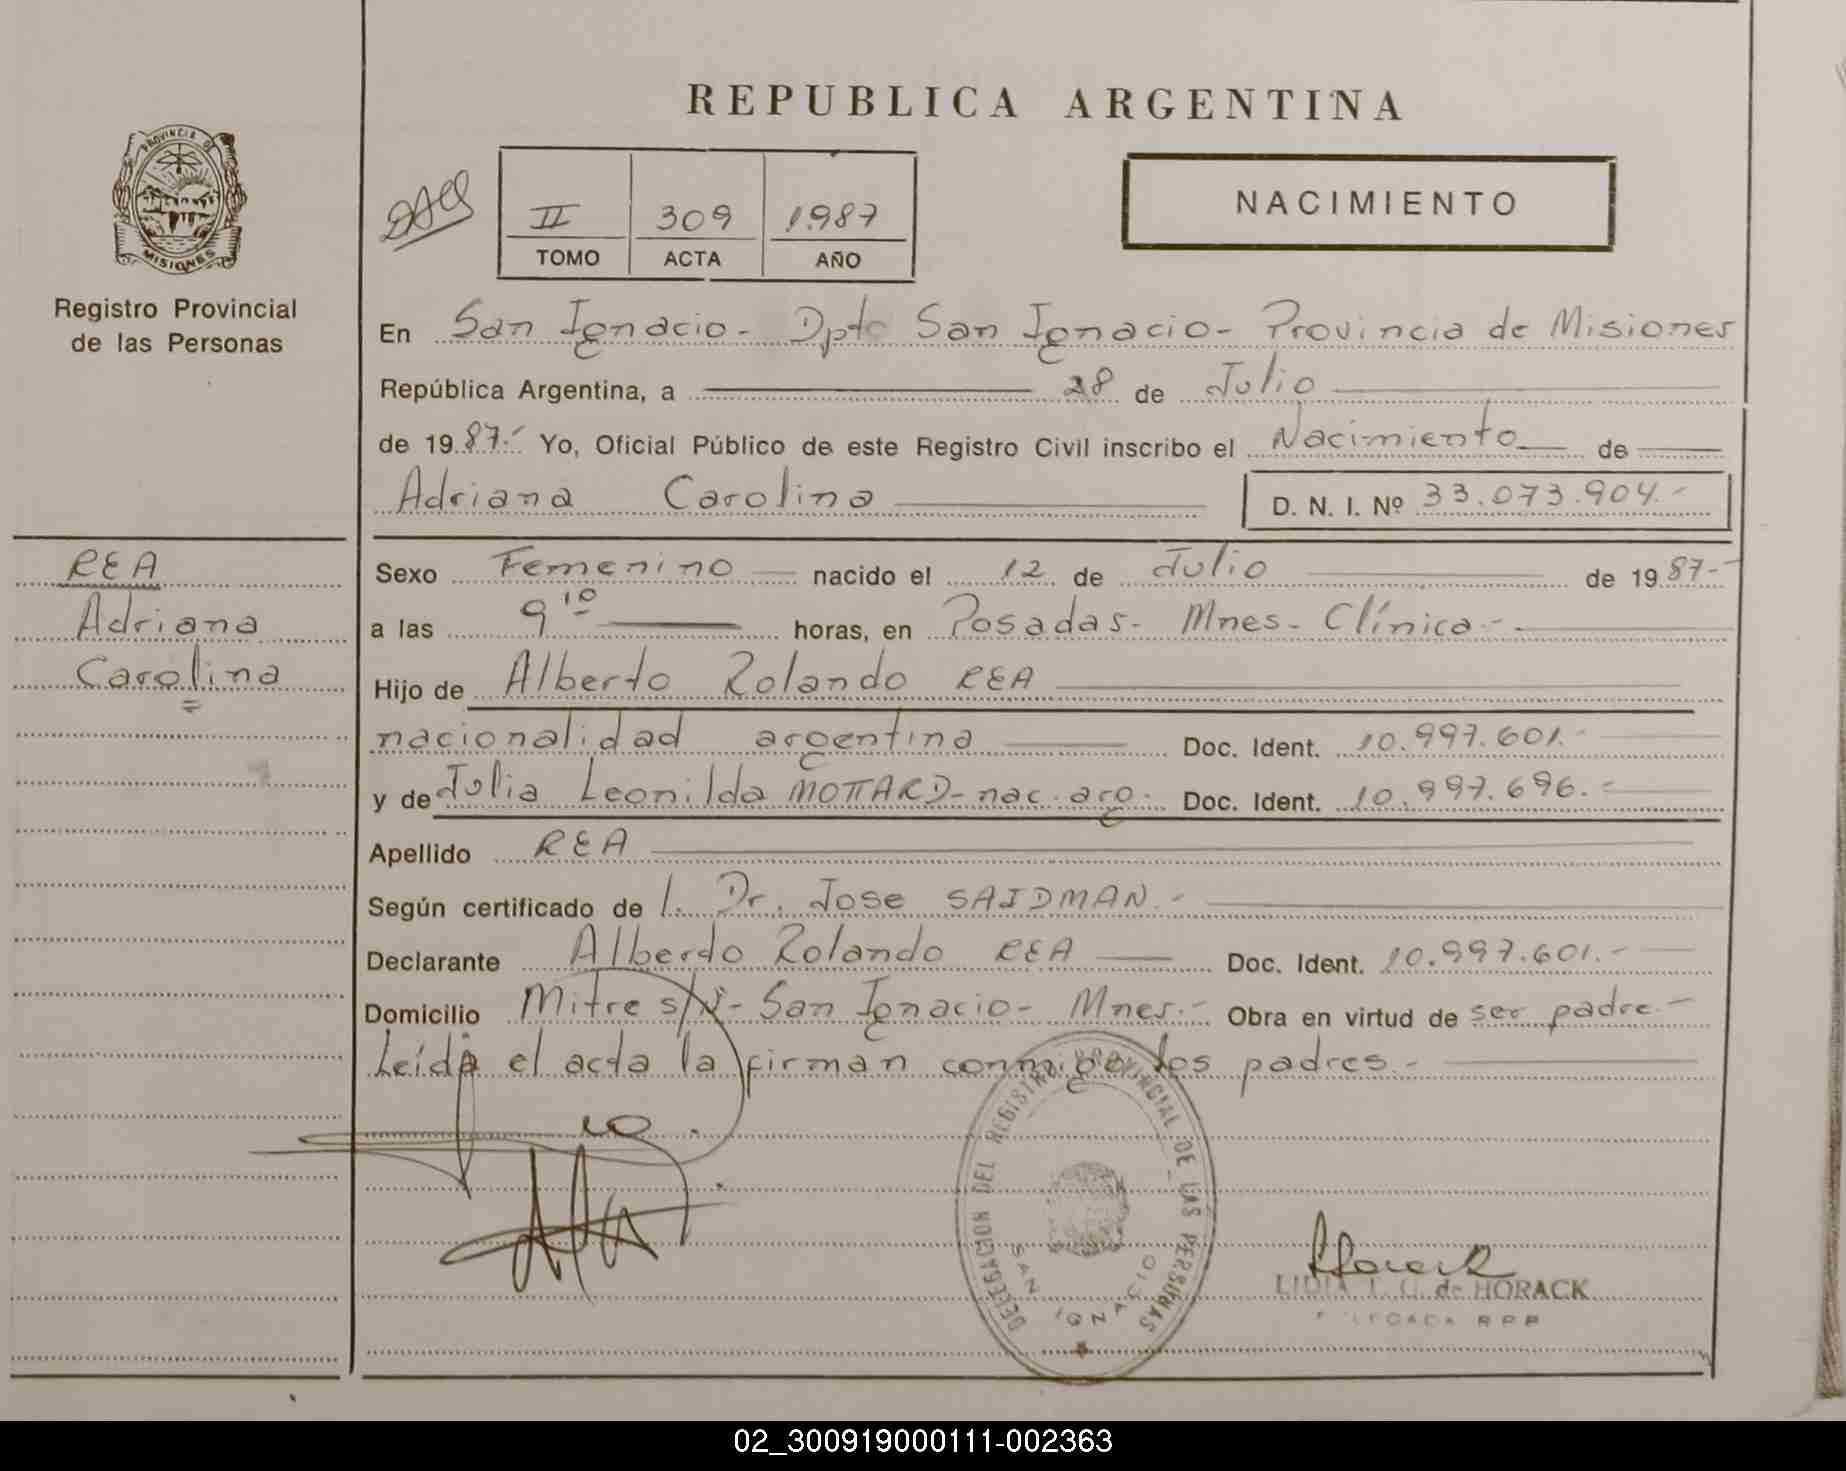 REPUBLICA ARGENTINA
PROVINCIA DE
MISIONES
Registro Provincial
de las Personas
II 309 1.987
TOMO ACTA AÑO
NACIMIENTO
En San Ignacio - Dpto San Ignacio - Provincia de Misiones
República Argentina, a 28 de Julio
de 19 87.- Yo, Oficial Público de este Registro Civil inscribo el Nacimiento de
Adriana Carolina D. N. I. Nº 33.073.904.-
REA
Adriana
Carolina
Sexo Femenino nacido el 12 de Julio de 19 87.-
a las 9 10 horas, en Posadas - Mnes - Clínica -
Hijo de Alberto Rolando REA
nacionalidad argentina Doc. Ident. 10.997.601.-
y de Julia Leonilda MOTTARD - nac. arg. Doc. Ident. 10.997.696.-
Apellido REA
Según certificado de l. Dr. Jose SAIDMAN.-
Declarante Alberto Rolando REA Doc. Ident. 10.997.601.-
Domicilio Mitre s/N - San Ignacio - Mnes.- Obra en virtud de ser padre.-
Leída el acta la firman conmigo los padres.-
DELEGACION DEL REGISTRO PROVINCIAL DE LAS PERSONAS
SAN IGNACIO
Horack
LIDIA de HORACK
DELEGADA RPP
02_300919000111-002363